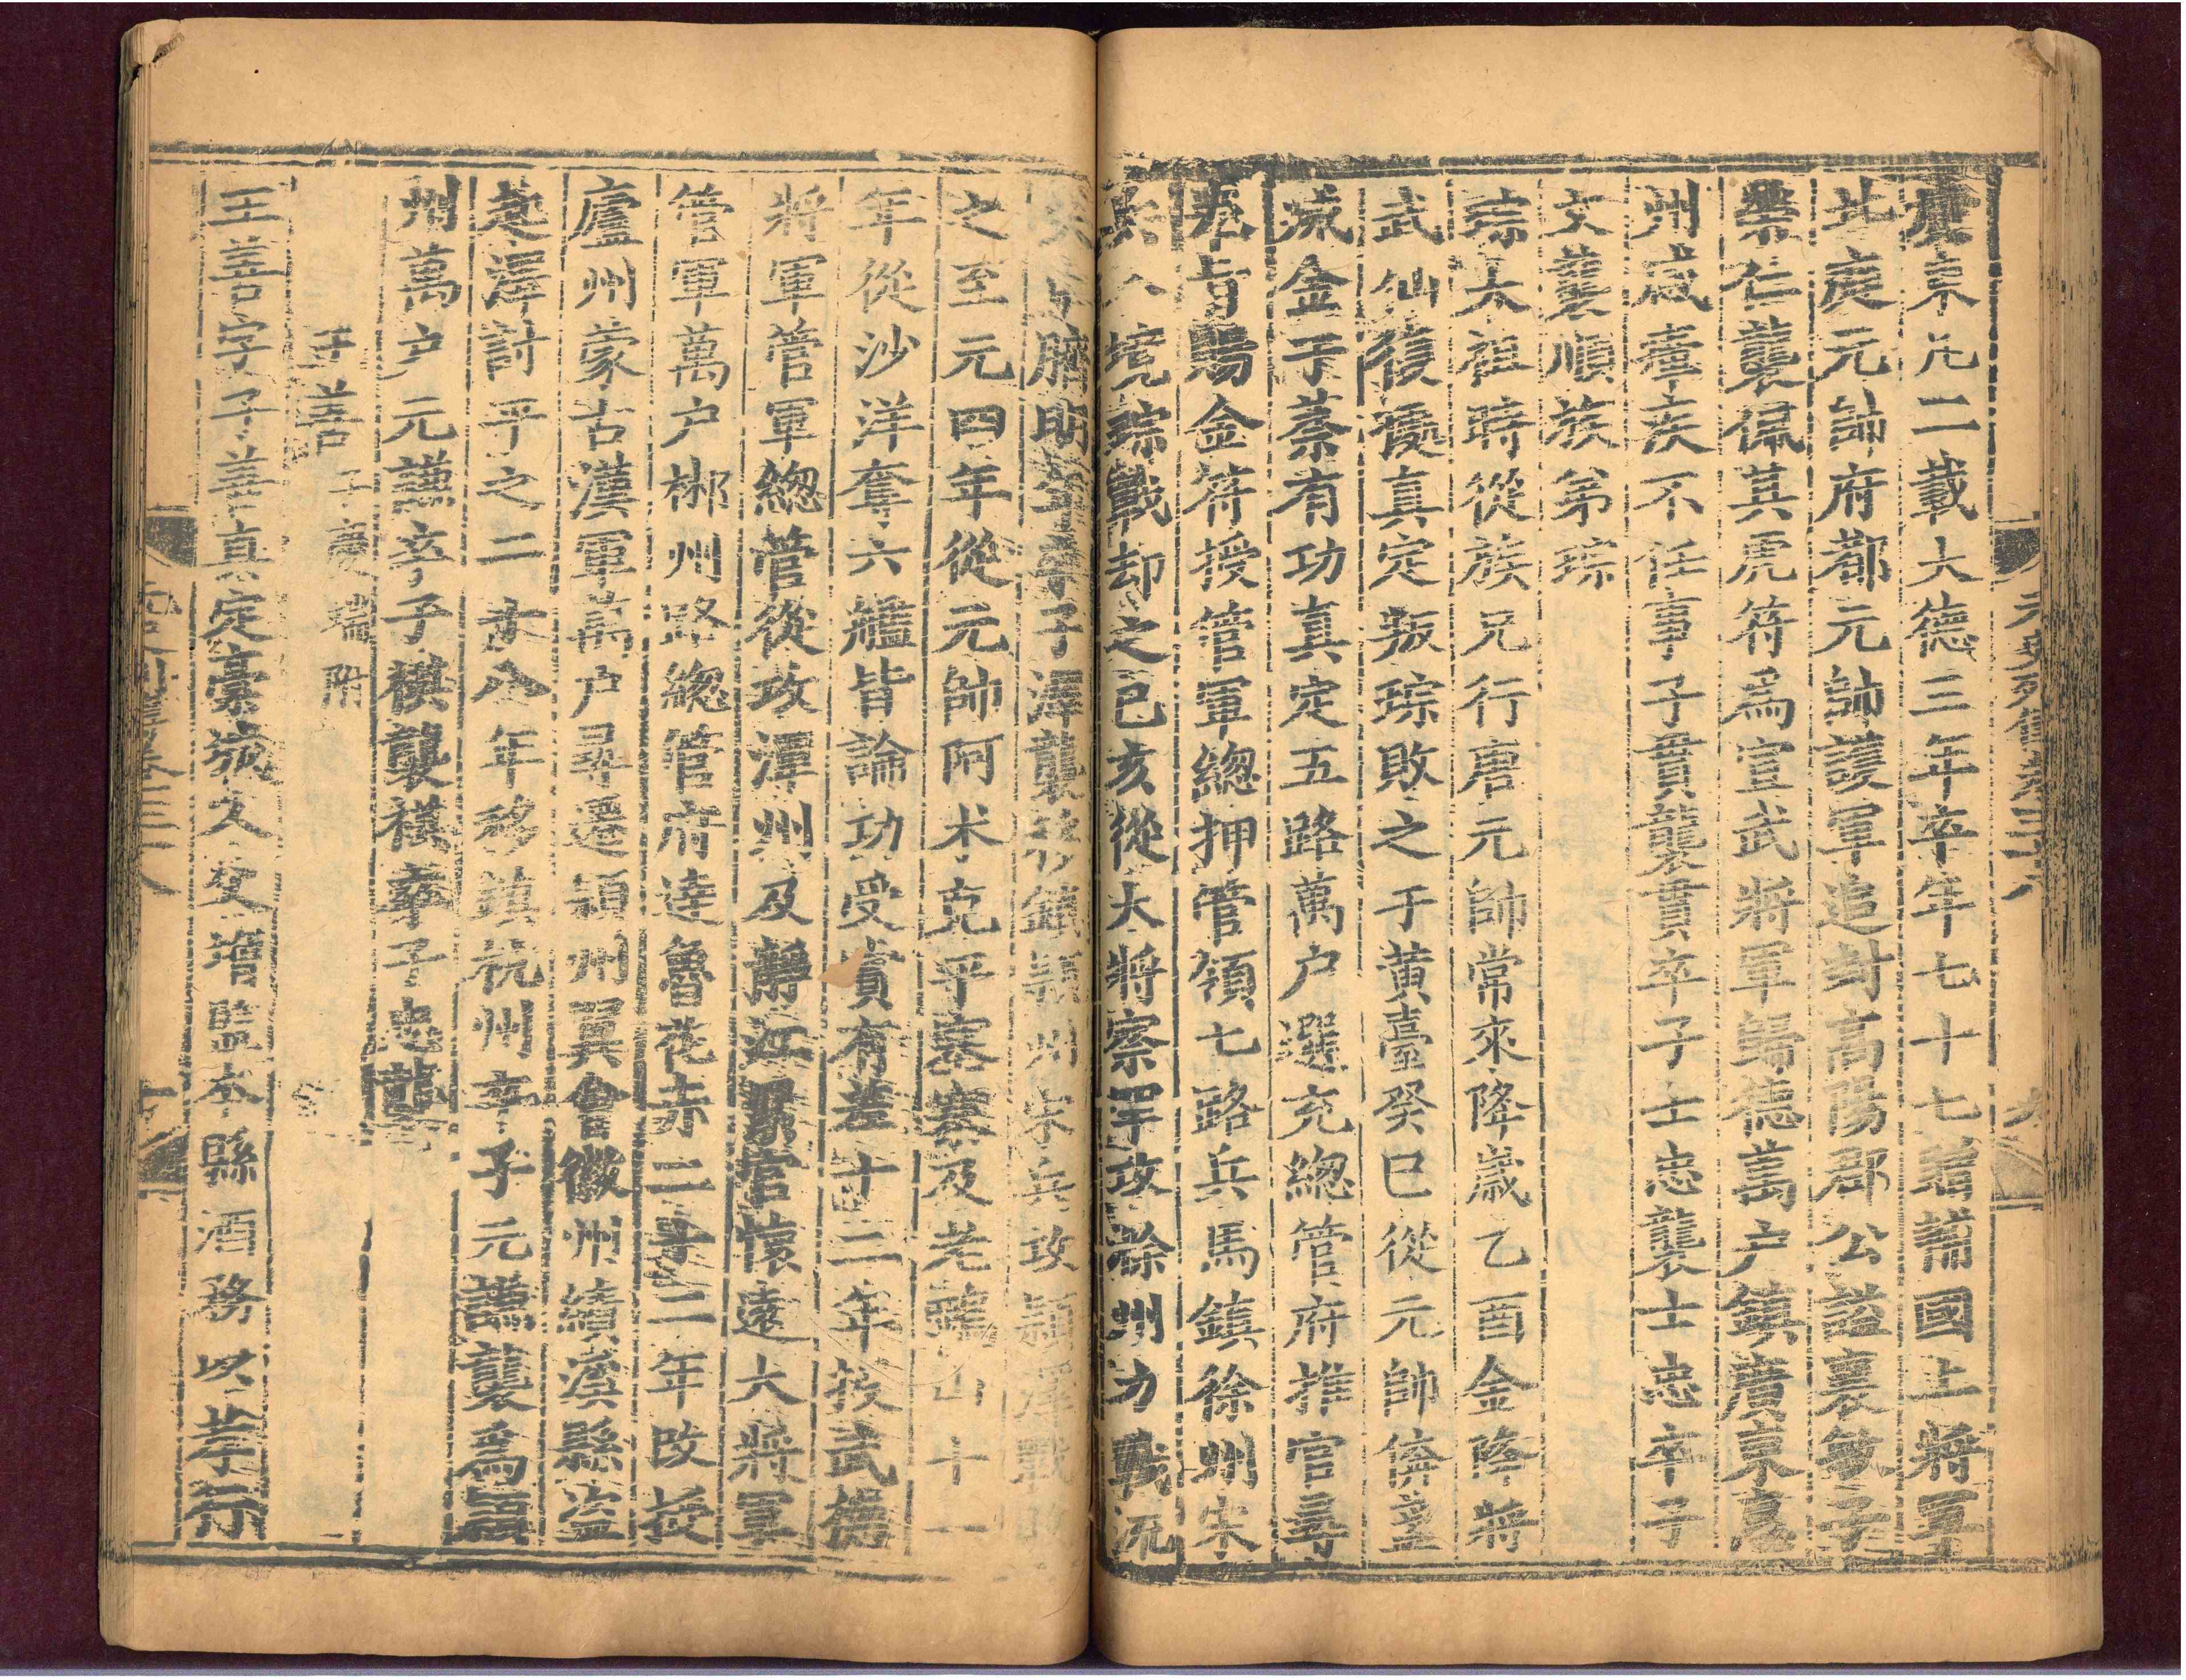 慶京凡二載大德三年卒年七十七贈輔國上將軍
北庭元帥府都元帥護軍追封高陽郡公諡襄敏子
榮仁襲佩其虎符爲宣武將軍歸德萬户鎮廣東惠
州歲瘴疾不任事子貫襲貫卒子士忠襲士忠卒子
文襲順族弟琮
琮太祖時從族兄行唐元帥常來降歲乙酉金降將
武仙復㩴真定叛琮敗之于黄臺癸巳從元帥倴盞
滅金于蔡有功真定五路萬户選充總管府推官尋
奉旨賜金符授管軍總押管領七路兵馬鎮徐州宋
兵入境琮戰却之己亥從大將察罕攻滁州力戰流
矢 臍明年卒子澤襲移鎮潁州宋兵攻潁澤戰
之至元四年從元帥阿术克平塞寨及老鴉山十一
年從沙洋奪六艦皆論功受賞有差十二年授武德
將軍管軍總管從攻潭州及静江累官懷遠大將軍
管軍萬户郴州路總管府達魯花赤二十二年改授
廬州蒙古漢軍萬户尋遷潁州翼會徽州績溪縣盜
起澤討平之二十八年移鎮杭州卒子元謙襲爲潁
州萬户元謙卒子祺襲祺卒子忠襲
王善 子慶瑞附
王善字子善真定藁城人父增監本縣酒務以孝行
元史列傳卷三十八
九
元史列傳卷三十八
十